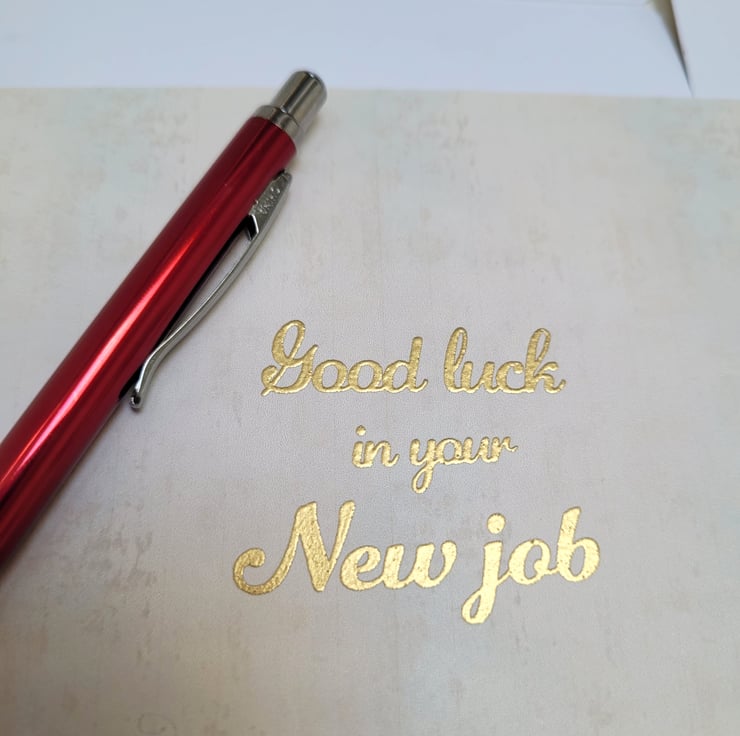 Good luck
in your
New job